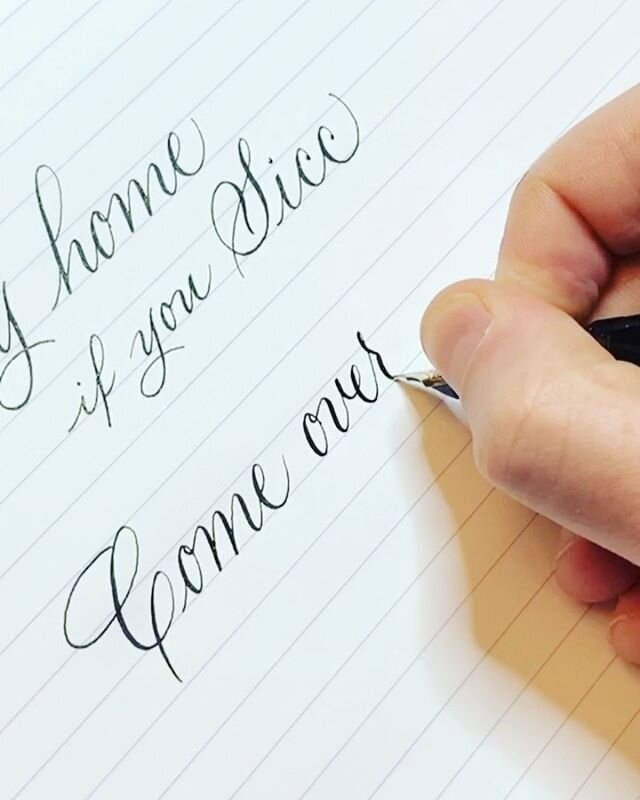 y home
if you Sicc
Come over